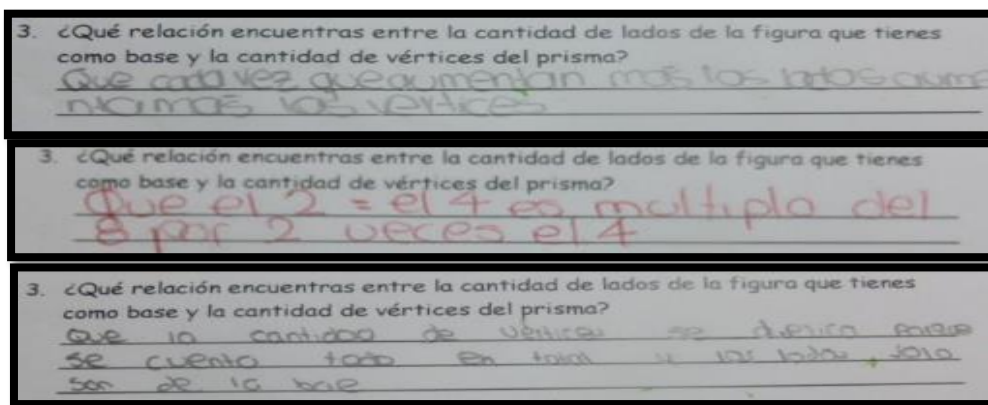 3. ¿Qué relación encuentras entre la cantidad de lados de la figura que tienes
como base y la cantidad de vértices del prisma?
Que cada vez que aumentan mas los lados aume
nta mas los vertices
3. ¿Qué relación encuentras entre la cantidad de lados de la figura que tienes
como base y la cantidad de vértices del prisma?
Que el 2 = el 4 es multiplo del
8 por 2 veces el 4
3. ¿Qué relación encuentras entre la cantidad de lados de la figura que tienes
como base y la cantidad de vértices del prisma?
Que la cantidad de vertices se porque
se cuenta todo en total y los lados solo
son de la